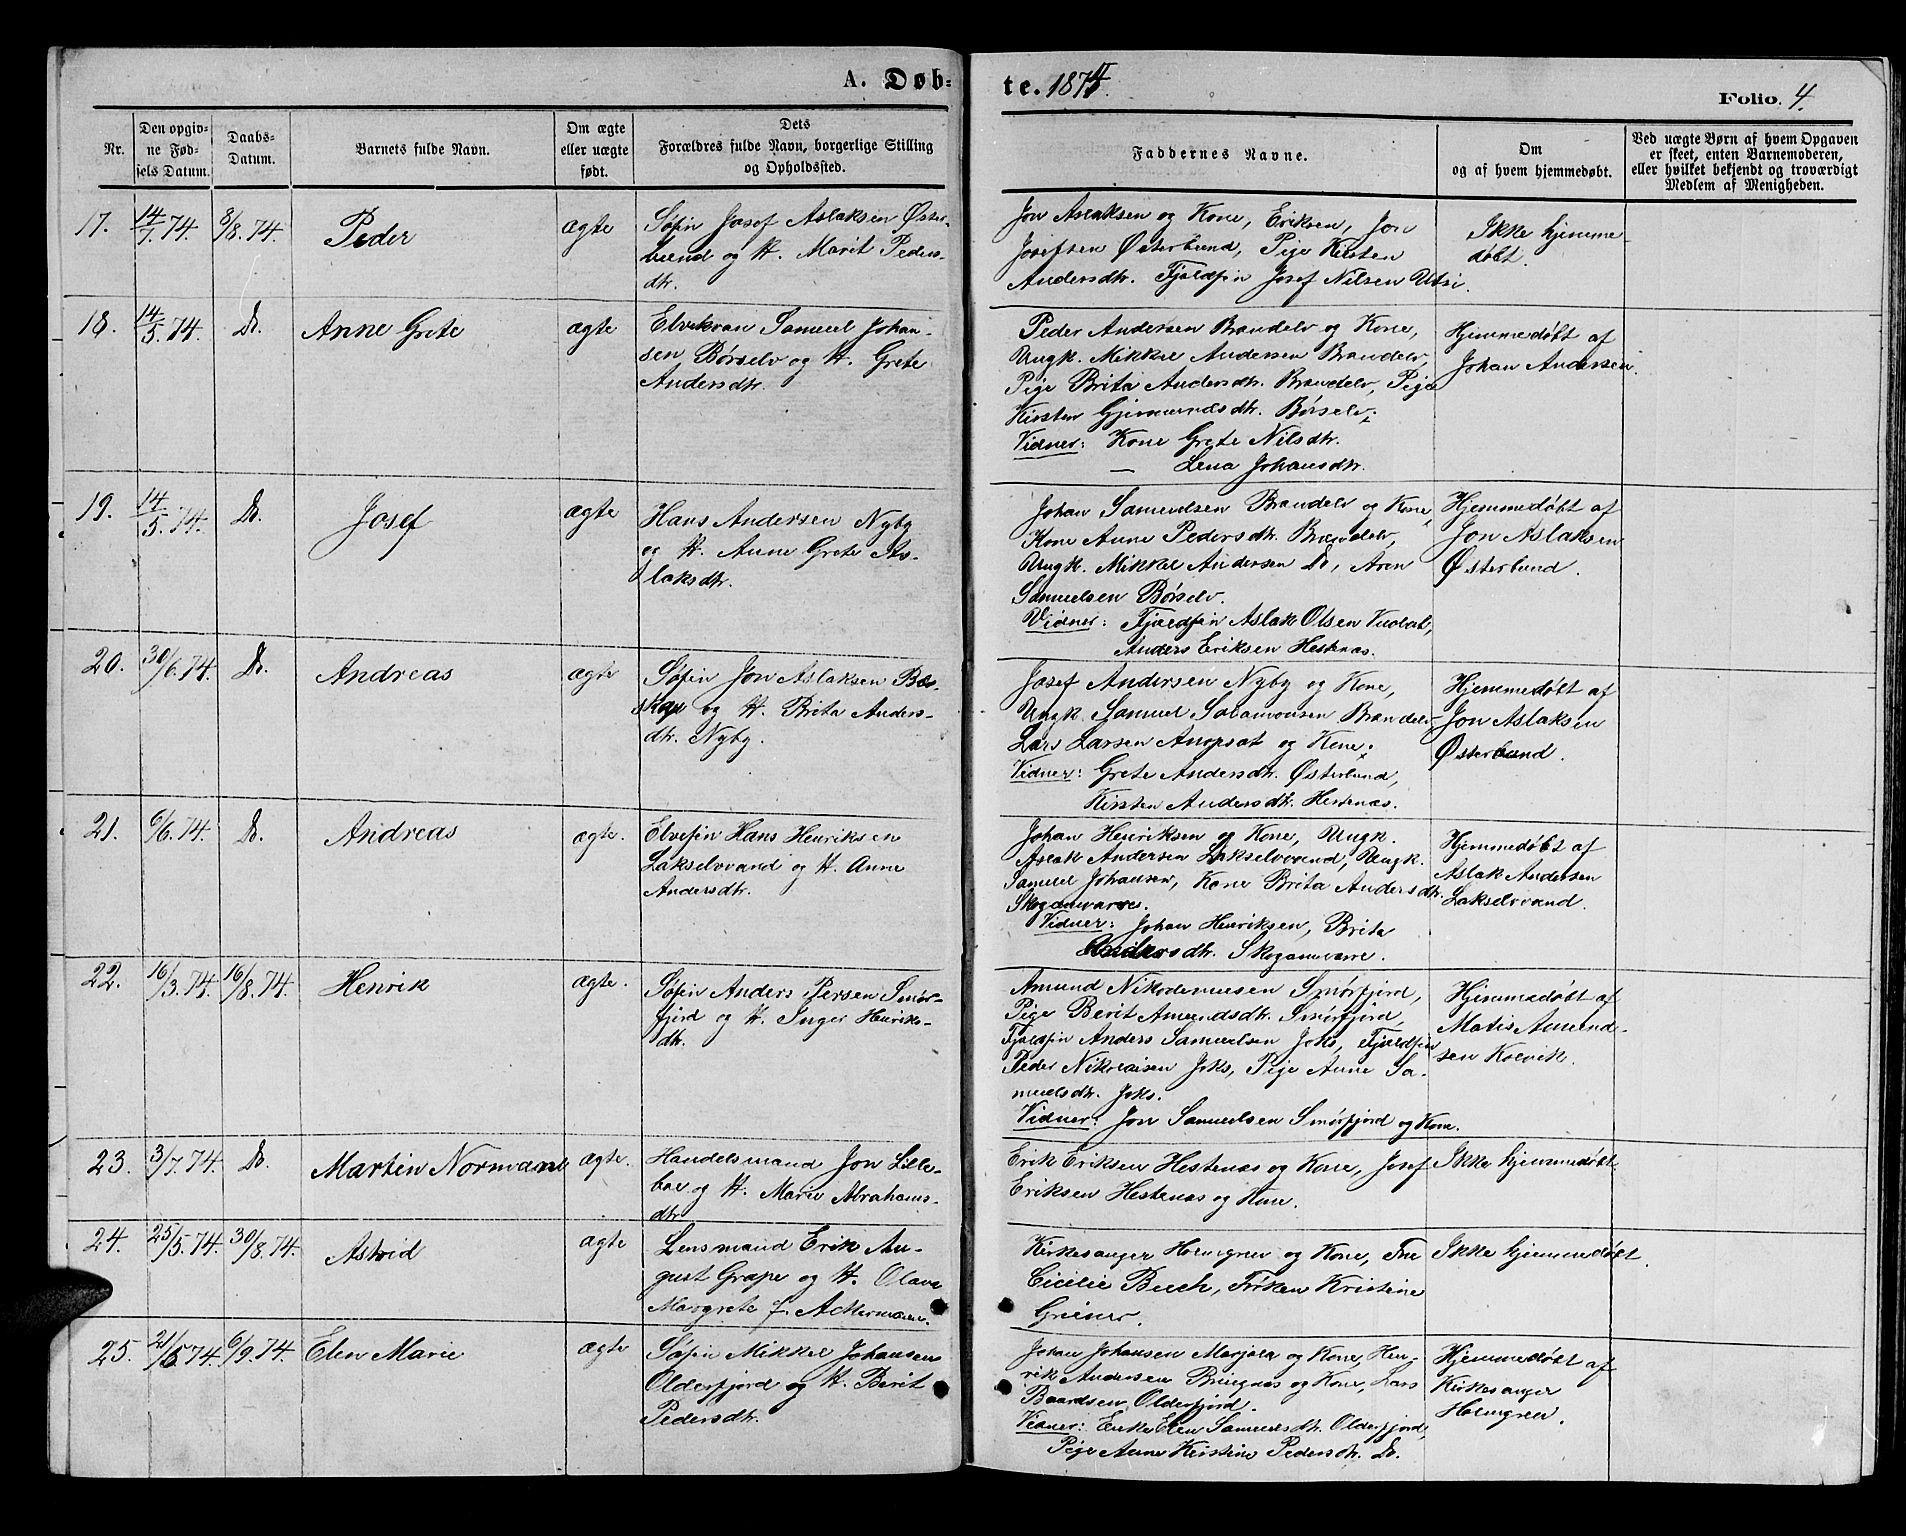 A. Døb=
te. 1874.
Folio. 4.
Nr.
Den opgiv=
ne Fød=
sels Datum.
Daabs=
Datum.
Barnets fulde Navn.
Om ægte
eller uægte
født.
Dets
Forældres fulde Navn, borgerlige Stilling
og Opholdssted.
Faddernes Navne.
Om
og af hvem hjemmedøbt.
Ved uægte Børn af hvem Opgaven
er skeet, enten Barnemoderen,
eller hvilket bekjendt og troværdigt
Medlem af Menigheden.
17. 14/7. 74. 8/8. 74. Peder ægte
Søfin Josef Aslaksen Øster-
bund og H. Marit Peders-
dtr.
Jon Aslaksen og Kone, Eriksen, Jon
Josefsen Østerbund, Pige Kirsten
Andersdtr. Fjeldfin Josef Nilsen Utsi.
Ikke hjemme-
døbt.
18. 14/5. 74. Do. Anne Grete ægte
Elvekvæn Samuel Johan-
sen Børselv og H. Grete
Andersdtr.
Peder Andersen Brændelv og Kone,
Ungk. Mikkel Andersen Brændelv,
Pige Brita Andersdtr. Brændelv, Pige
Kirsten Gjermundsdtr. Børselv.
Vidner: Kone Grete Nilsdtr.
— Lena Johansdtr.
Hjemmedøbt af
Johan Andersen.
19. 14/5. 74. Do. Josef ægte
Hans Andersen Nyby
og H. Anne Grete As-
laksdtr.
Johan Samuelsen Brændelv og Kone,
Kone Anne Pedersdtr. Brændelv,
Ungk. Mikkel Andersen Do, Aren
Samuelsen Børselv.
Vidner: Fjeldfin Aslak Olsen Vuolat,
Anders Eriksen Hestenæs.
Hjemmedøbt af
Jon Aslaksen
Østerbund.
20. 30/6. 74. Do. Andreas ægte
Søfin Jon Aslaksen
og H. Brita Anders-
dtr. Nyby.
Josef Andersen Nyby og Kone,
Ungk. Samuel Salamonsen Brændelv
Lars Larsen og Kone.
Vidner: Grete Andersdtr. Østerbund,
Kirsten Andersdtr. Hestenæs.
Hjemmedøbt af
Jon Aslaksen
Østerbund.
21. 6/6. 74. Do. Andreas ægte.
Elvefin Hans Henriksen
Lakselvvand og H. Anne
Andersdtr.
Johan Henriksen og Kone, Ungk.
Aslak Andersen Lakselvvand, Ungk.
Samuel Johansen, Kone Brita Andersdtr.
Skoganvarre.
Vidner: Johan Henriksen, Brita
Andersdtr. Skoganvarre.
Hjemmedøbt af
Aslak Andersen
Lakselvvand.
22. 16/3. 74. 16/8. 74. Henrik ægte.
Søfin Anders Persen Smør-
fjord og H. Inger Henriks-
dtr.
Amund Nikodemusen Smørfjord,
Pige Berit Amundsdtr. Smørfjord,
Fjeldfin Anders Samuelsen Joks, Fjeldfin
Peder Nikolaisen Joks, Pige Anne Sa-
muelsdtr. Joks.
Vidner: Jon Samuelsen Smørfjord og Kone.
Hjemmedøbt af
Matis Amund-
sen Kolvik.
23. 3/7. 74. Do. Martin Normann ægte.
Handelsmand Jon Lille-
bae og H. Marie Abrahams-
dtr.
Erik Eriksen Hestenæs og Kone, Josef
Eriksen Hestenæs og Kone.
Ikke hjemmedøbt.
24. 25/5. 74. 30/8. 74. Astrid ægte
Lensmand Erik Au-
gust Grape og H. Olava
Margrete f. Ackermann.
Kirkesanger Holmgren og Kone, Frue
Cicilie Buch, Frøken Kristine
Greiner.
Ikke hjemmedøbt.
25. 21/5 74. 6/9. 74. Elen Marie ægte
Søfin Mikkel Johansen
Olderfjord og H. Berit
Pedersdtr.
Johan Johansen Marjala og Kone, Hen-
rik Andersen Bringnæs og Kone, Lars
Baardsen Olderfjord.
Vidner: Enke Elen Samuelsdtr. Olderfjord,
Pige Anne Kirstine Pedersdtr. Do.
Hjemmedøbt af
Kirkesanger
Holmgren.